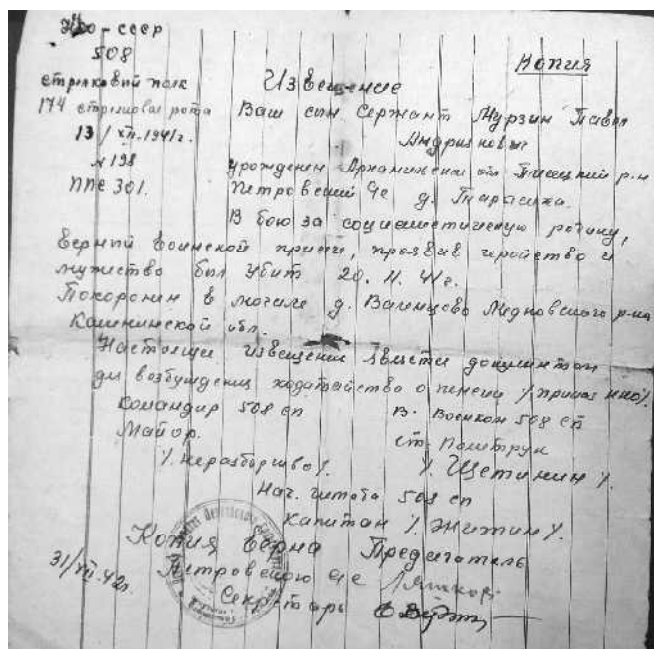 НКО-СССР
508
стрелковый полк
174 стрелковая рота
13/XII.1941г.
№198
ППС 301.
Копия
Извещение
Ваш сын Сержант Мурзин Павел
Андрианович
урожденец Архангельской обл р-н
Петровский с/с д. Тарасиха.
В бою за социалистическую родину,
верный воинской присяги, проявив геройство и
мужество был убит 20.11.41г.
Похоронен в могиле д. Медновского р-на
Калининской обл.
Настоящее извещение является документом
для возбуждения ходатайства о пенсии /приказ НКО/.
Командир 508 сп
Майор.
/.неразборчиво/.
В. Военком 508 сп
ст. Политрук
/. Щетинин /.
Нач. штаба 508 сп
Капитан /. Житин /.
Копия верна Председатель
Петровского с/с
Секретарь
31/VII.42г.